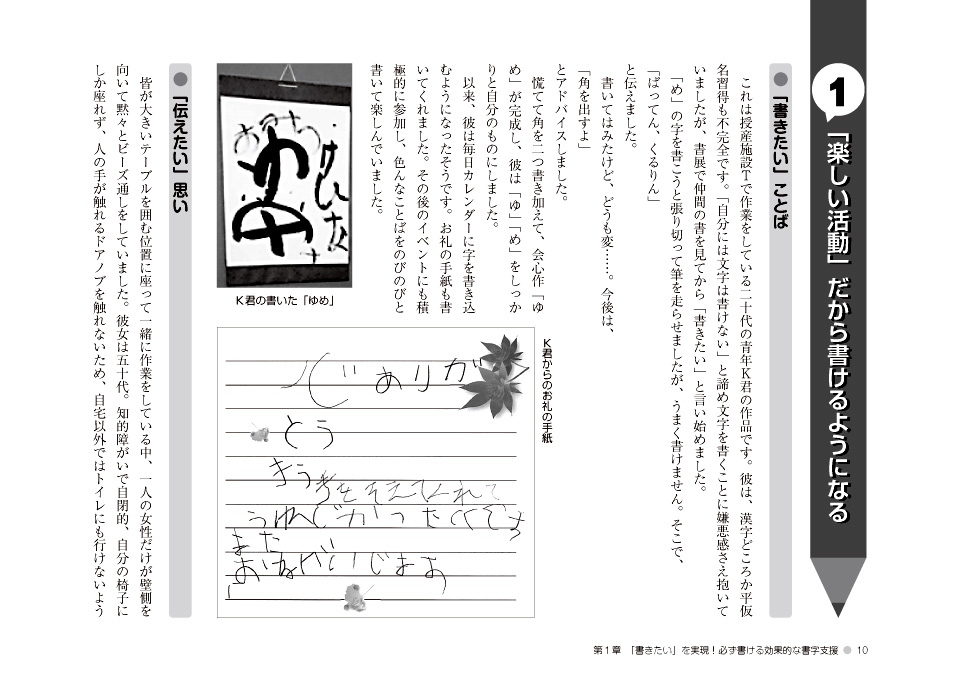 1
「楽しい活動」だから書けるようになる
●「書きたい」ことば
これは授産施設Tで作業をしている二十代の青年K君の作品です。彼は、漢字どころか平仮
名習得も不完全です。「自分には文字は書けない」と諦め文字を書くことに嫌悪感さえ抱いて
いましたが、書展で仲間の書を見てから「書きたい」と言い始めました。
「め」の字を書こうと張り切って筆を走らせましたが、うまく書けません。そこで、
「ばってん、くるりん」
と伝えました。
書いてはみたけど、どうも変……。今後は、
「角を出すよ」
とアドバイスしました。
慌てて角を二つ書き加えて、会心作「ゆ
め」が完成し、彼は「ゆ」「め」をしっか
りと自分のものにしました。
以来、彼は毎日カレンダーに字を書き込
むようになったそうです。お礼の手紙も書
いてくれました。その後のイベントにも積
極的に参加し、色んなことばをのびのびと
書いて楽しんでいました。
ゆめ
K君の書いた「ゆめ」
K君からのお礼の手紙
じありが
とう
また
●「伝えたい」思い
皆が大きいテーブルを囲む位置に座って一緒に作業をしている中、一人の女性だけが壁側を
向いて黙々とビーズ通しをしていました。彼女は五十代。知的障がいで自閉的、自分の椅子に
しか座れず、人の手が触れるドアノブを触れないため、自宅以外ではトイレにも行けないよう
第1章 「書きたい」を実現！必ず書ける効果的な書字支援 ● 10